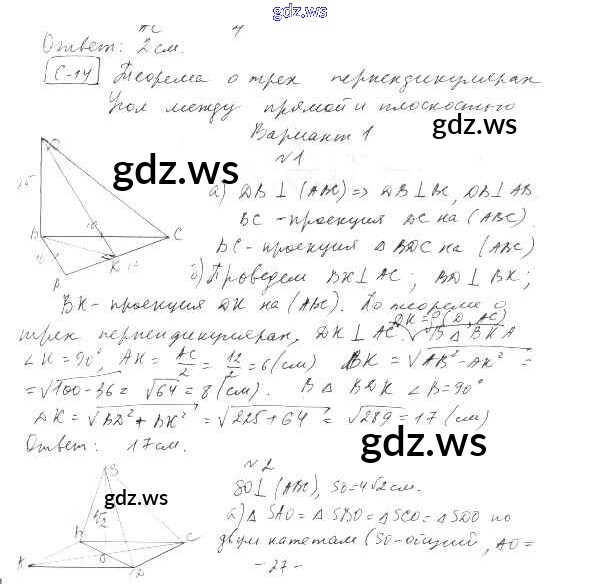 gdz.ws
Ответ: 2 см.
С-14 Теорема о трех перпендикулярах
Угол между прямой и плоскостью
Вариант 1
gdz.ws
№1
gdz.ws
а) DB⊥(ABC) => DB⊥BC, DB⊥AB
BC - проекция DC на (ABC).
BC - проекция △BDC на (ABC)
б) Проведем BK⊥AC; BD⊥BK;
BK - проекция DK на (ABC). По теореме о
трех перпендикулярах, DK⊥AC. DK=ρ(D, AC) В △BKA
∠K=90°, AK = AC/2 = 12/2 = 6 (см) BK = √AB²-AK² =
= √100-36 = √64 = 8 (см). В △BDK ∠B=90°
DK = √BD²+BK² = √225+64 = √289 = 17 (см)
Ответ: 17 см.
gdz.ws
№2
SO⊥(ABC), SO=4√2 см.
gdz.ws
а) △SAO=△SBO=△SCO=△SDO по
двум катетам (SO-общий, AO=
-27-